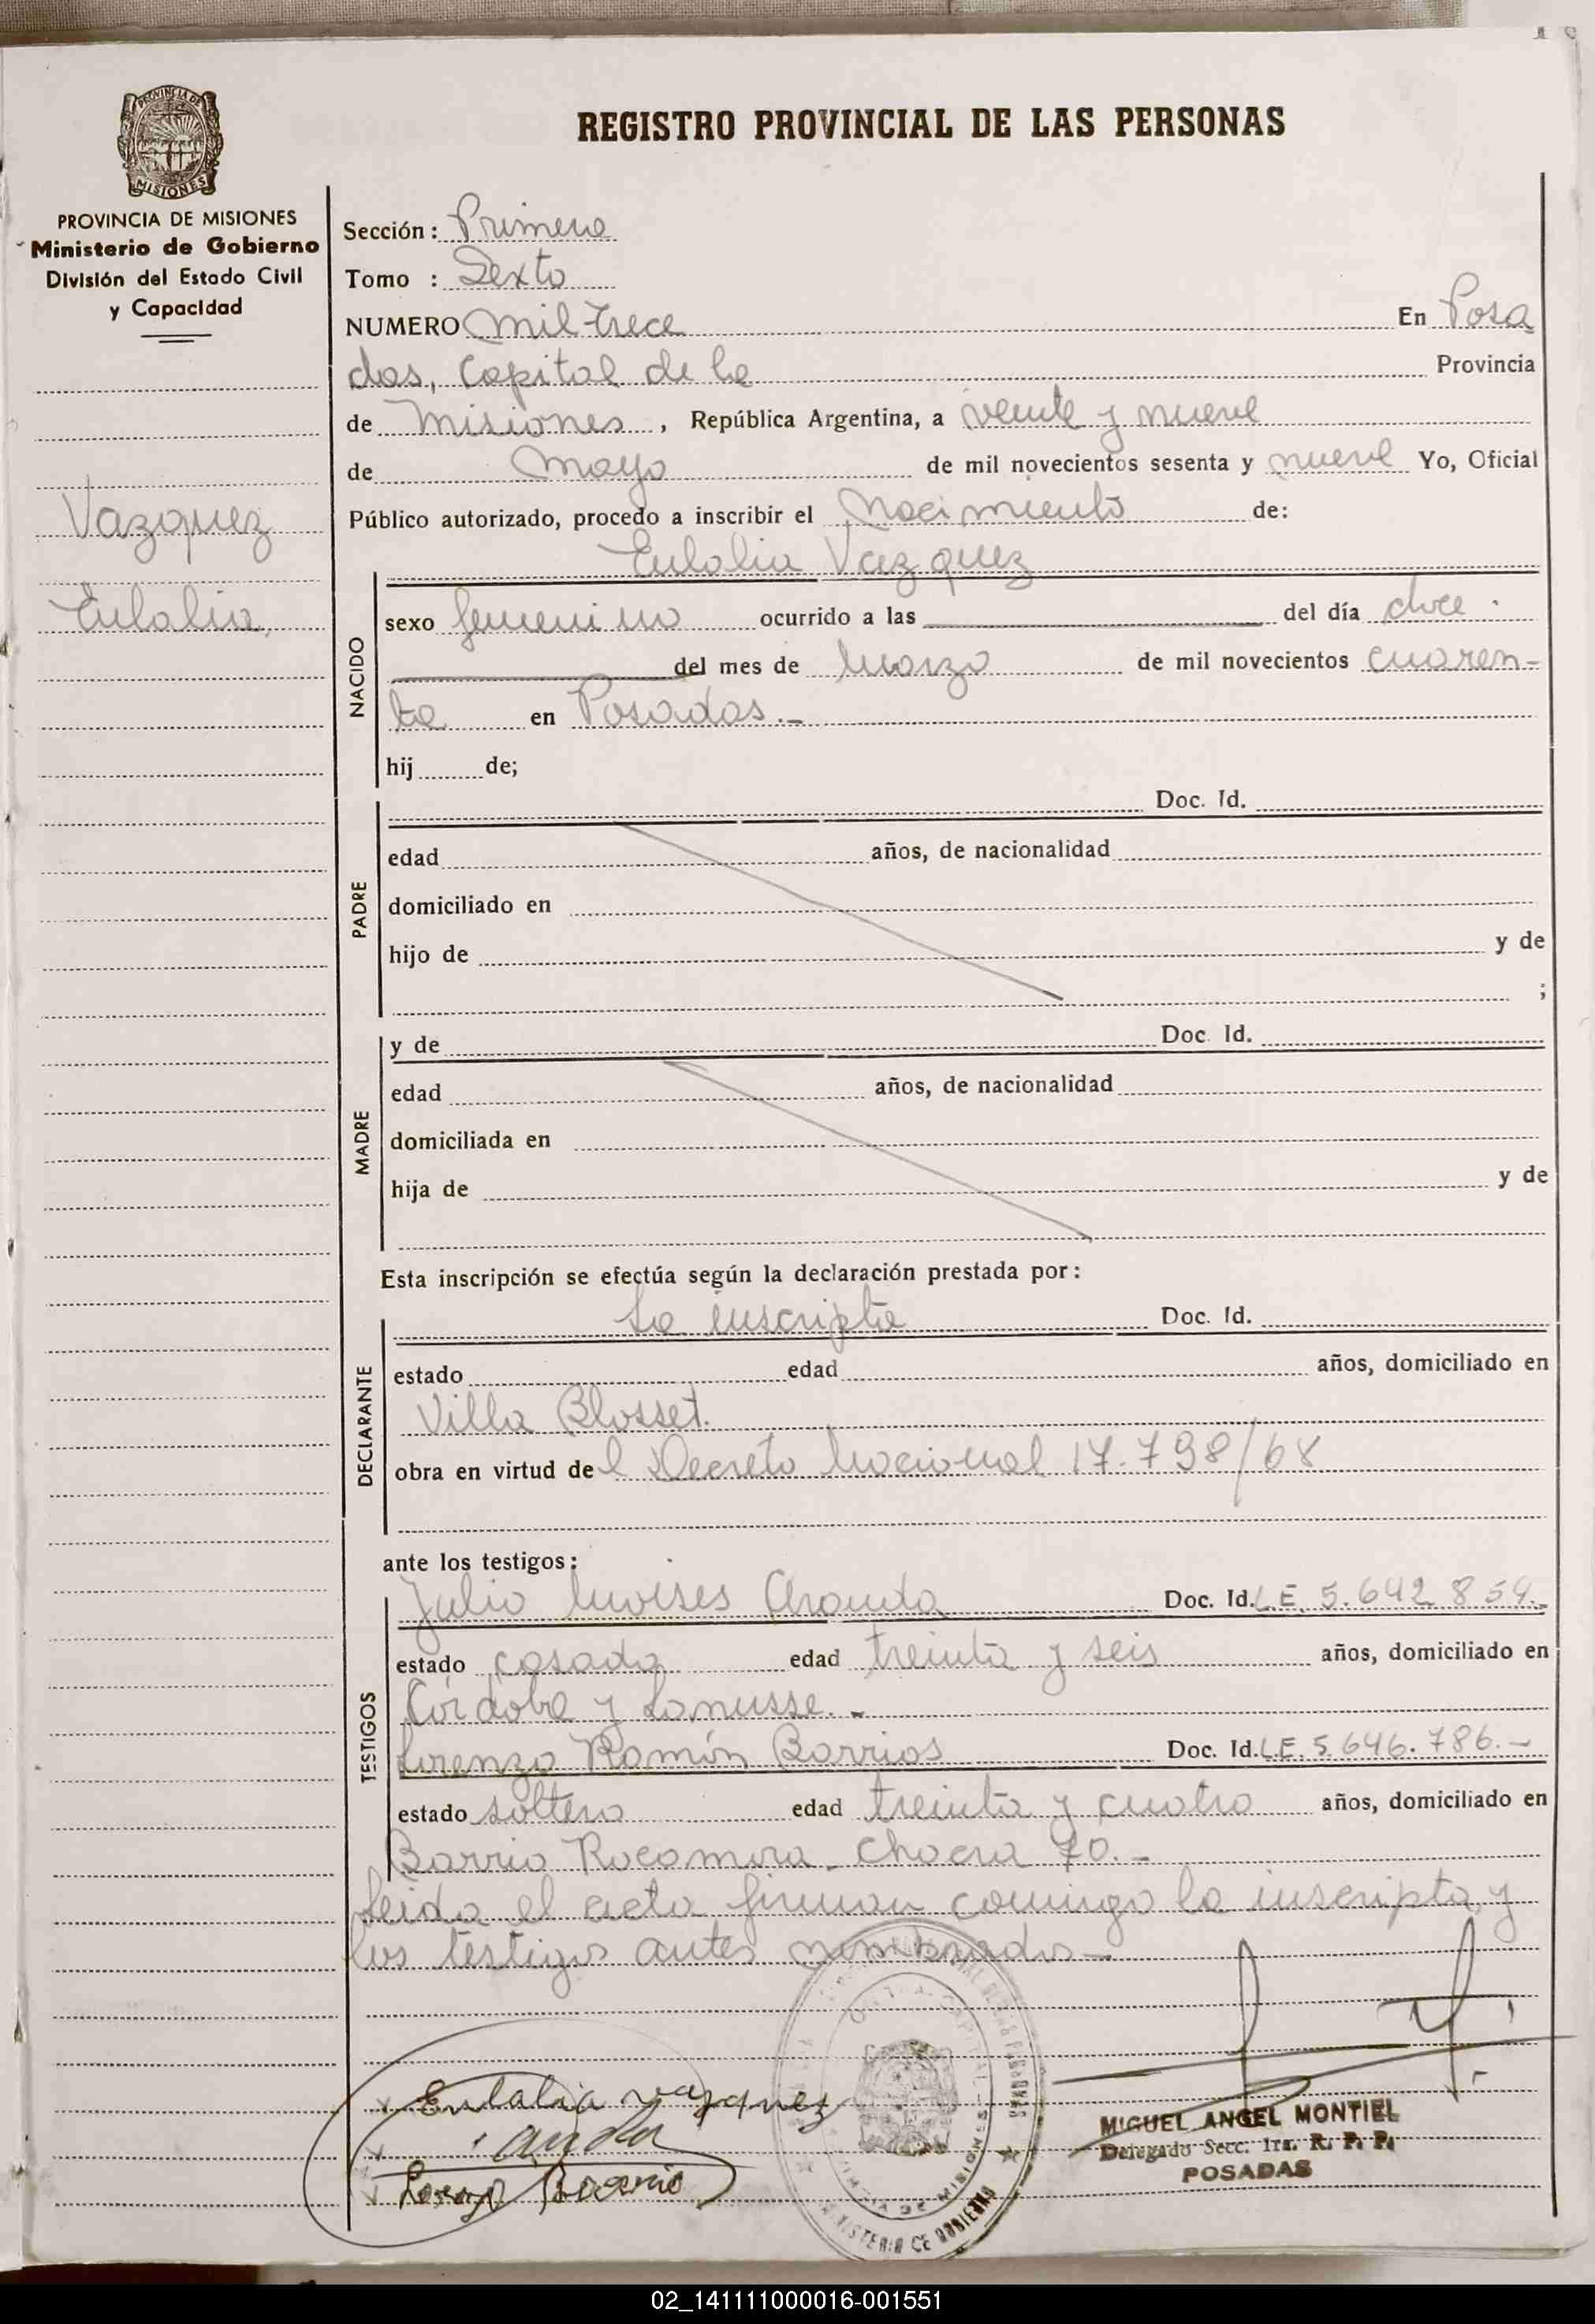 PROVINCIA DE
MISIONES
PROVINCIA DE MISIONES
Ministerio de Gobierno
División del Estado Civil
y Capacidad
Vazquez
Eulalia
REGISTRO PROVINCIAL DE LAS PERSONAS
Sección: Primera
Tomo : Sexto
NUMERO mil trece En Posa
das, Capital de la Provincia
de Misiones, República Argentina, a veinte y nueve
de mayo de mil novecientos sesenta y nueve Yo, Oficial
Público autorizado, procedo a inscribir el Nacimiento de:
Eulalia Vazquez
NACIDO
sexo femenino ocurrido a las del día doce
del mes de Marzo de mil novecientos cuaren-
ta en Posadas.-
hij de;
PADRE
Doc. Id.
edad años, de nacionalidad
domiciliado en
hijo de y de
;
MADRE
y de Doc. Id.
edad años, de nacionalidad
domiciliada en
hija de y de
Esta inscripción se efectúa según la declaración prestada por:
DECLARANTE
La inscripta Doc. Id.
estado edad años, domiciliado en
Villa Blosset.
obra en virtud del Decreto Nacional 17.798/68
ante los testigos:
TESTIGOS
Julio Moises Doc. Id. L.E. 5.642.854.-
estado casado edad treinta y seis años, domiciliado en
Córdoba y Lanusse.-
Lorenzo Ramón Barrios Doc. Id. L.E. 5.646.786.-
estado soltero edad treinta y cuatro años, domiciliado en
Barrio Rocamora. Chacra 70.-
Leida el acta firman conmigo la inscripta y
los testigos antes nombrados-
Eulalia vazquez
MIGUEL ANGEL MONTIEL
Delegado Secc. 1ra. R. P. P.
POSADAS
MINISTERIO DE GOBIERNO
02_141111000016-001551